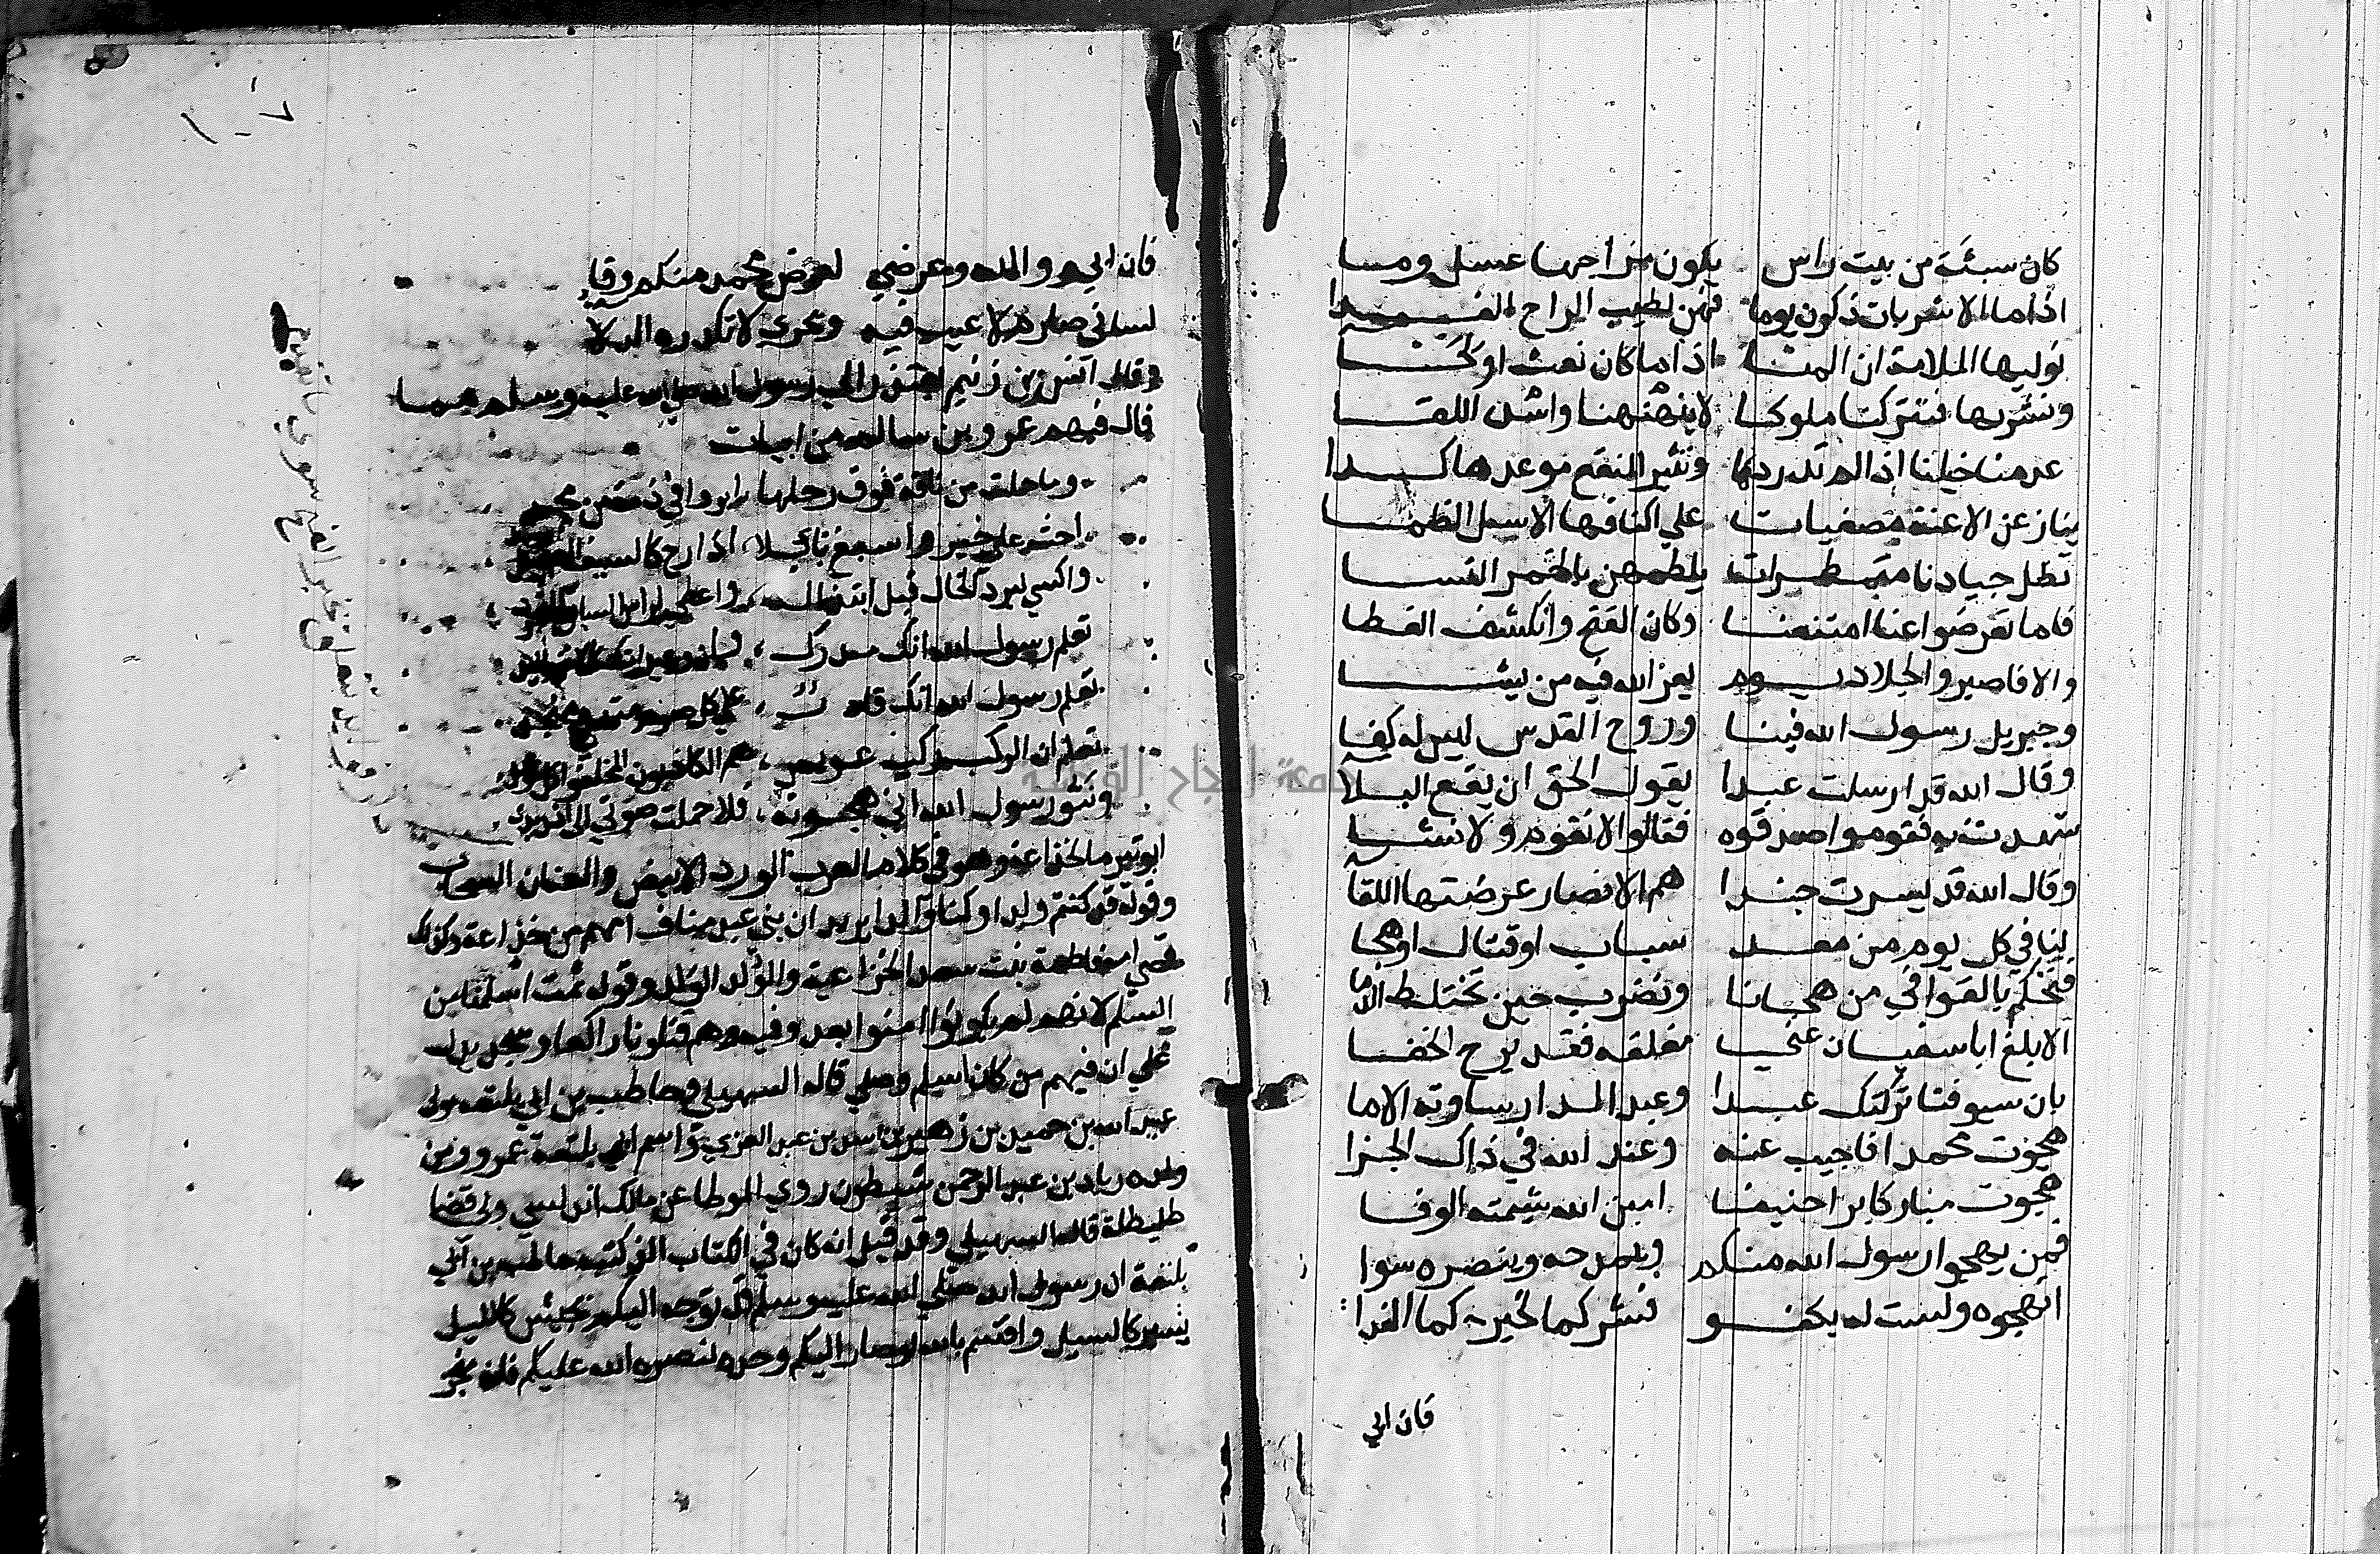 كان سبئة من بيت راس يكون مزاجها عسل وما
اذا ما الاشربات ذكرن يوما فهن لطيب الراح الفدا
نوليها الملامة ان المنا اذا ما كان نعث او لحا
ونشربها فتتركنا ملوكا لا ينهنهنا واسد اللقا
عدمنا خيلنا اذا لم تدردها وتثير النقع موعدها كدا
ينازعن الاعنة مصغيات علي اكتافها الاسل الظما
تظل جيادنا متمطرات يلطمهن بالخمر النسا
فاما تعرضوا عنا امتنعنا وكان الفتح وانكشف الغطا
والا فاصبروا لجلاد يوم يعز الله فيه من يشا
وجبريل رسول الله فينا وروح القدس ليس له كفا
وقال الله قد ارسلت عبدا يقول الحق ان يقع البلا
شهدت به فقوموا صدقوه فقالوا لا نقوم ولا نشا
وقال الله قد يسرت جندا هم الانصار عرضتها اللقا
لنا في كل يوم من معد سباب او قتال او هجا
فنحكم بالقوافي من هجانا ونضرب حين تختلط الدما
الا ابلغ ابا سفيان عني مغلقه فقد برح الخفا
بان سيوفنا تركتك عبدا وعبد الدار ساوته الاما
هجوت محمدا فاجيب عنه وعند الله في ذاك الجزا
هجوت مباركا برا حنيفا امين الله شيمته الوفا
فمن يهجوا رسول الله منكم ويمدحه وينصره سوا
اتهجوه ولست له بكفو فشركما لخيركما الفدا
فان ابي
فان ابي ووالده وعرضي لعرض محمد منكم وقا
لساني صارم لا عيب فيه وبحري لا تكدره الدلا
وقال انس بن زنيم يعتذر الي رسول الله صلي الله عليه وسلم مما
قال فيهم عمرو بن سالم من ابيات
وما حملت من ناقة فوق رحلها ابر واوفي ذمة من محمد
احث علي خير واسبغ نايلا اذا راح كالسيف
واكسي لبرد الخال قبل ابتذاله واعطي لراس السابق
تعلم رسول الله انك مدركي وان وعيدا منك
تعلم رسول الله انك قادر علي كل صرم
تعلم ان الركب ركب عويمر هم الكاذبون المخلفوا كل موعد
ونبو رسول الله اني هجوته فلا حملت صوتي الي اذن يدي
وهو في كلام العرب الورد الابيض والعنان السحاب
وقوله قد كنتم ولدا وكنا والدا يريد ان بني عبد مناف امهم من خزاعة وكذلك
قصي امه فاطمة بنت سعد الخزاعية والولد الولد وقوله ثمت اسلمنا من
السلم لانهم لم يكونوا امنوا بعد وفيه وهم قتلونا ركعا وسجدا يدل
علي ان فيهم من كان اسلم وصلي قاله السهيلي وحاطب بن ابي بلتعة مولي
عبد الله بن حميد بن زهير بن اسد بن عبد العزي واسم ابي بلتعة عمرو ومن
ولده زياد بن عبد الرحمن شبطون روي الموطا عن مالك اندلسي ولي قضا
طليطلة قاله السهيلي وقد قيل انه كان في الكتاب الذي كتبه حاطب بن ابي
بلتعة ان رسول الله صلي الله عليه وسلم قد توجه اليكم بجيش كالليل
يسير كالسيل واقسم بالله لو صار اليكم وحده لنصره الله عليكم فانه منجز